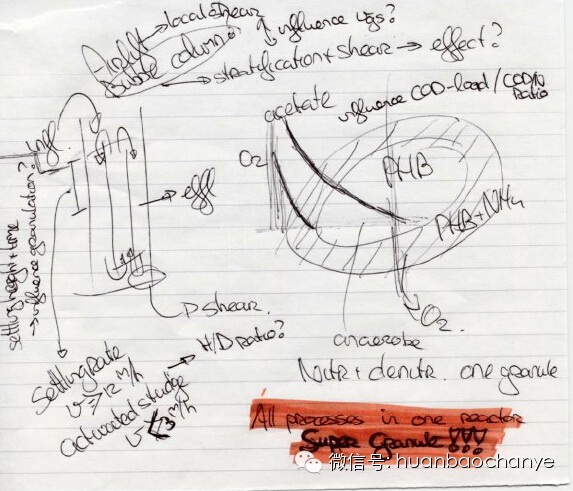 Airlift → local shear
Bubble column
influence ugs?
→ stratification + shear → effect?
acetate
influence COD-load/CODN ratio
Infl
O2
PHB
→ effl
PHB + NH4
settling height + time
→ influence granulation?
shear
O2
H/D ratio?
anaerobe
Settling rate
v ≥ 12 m/h
activated sludge
Nitr + denitr. one granule
All processes in one reactor
Super Granule!!!
微信号: huanbaochanye